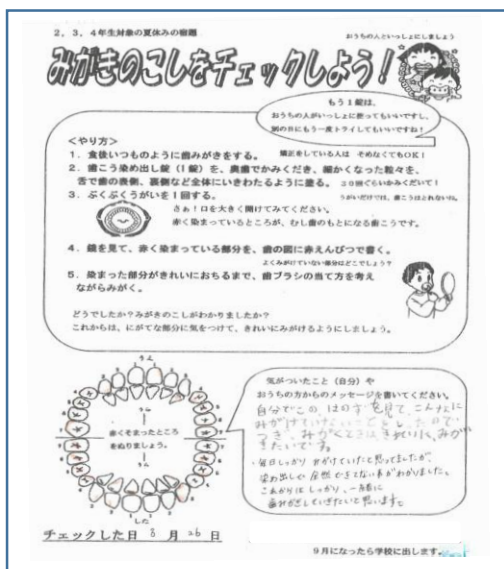 2、3、4年生対象の夏休みの宿題
おうちの人といっしょにしましょう
みがきのこしをチェックしよう!
もう1錠は、
おうちの人がいっしょに使ってもいいですし、
別の日にもう一度トライしてもいいですね!
<やり方>
1.食後いつものように歯みがきをする。
矯正をしている人は そめなくてもOK!
2.歯こう染め出し錠(1錠)を、奥歯でかみくだき、細かくなった粒々を、
舌で歯の表側、裏側など全体にいきわたるように塗る。 20回ぐらいかみくだいて!
3.ぶくぶくうがいを1回する。
うがいだけでは、歯こうはとれないね。
さぁ!口を大きく開けてみてください。
赤く染まっているところが、むし歯のもとになる歯こうです。
4.鏡を見て、赤く染まっている部分を、歯の図に赤えんぴつで書く。
よくみがけていない部分はどこでしょう?
5.染まった部分がきれいにおちるまで、歯ブラシの当て方を考え
ながらみがく。
どうでしたか?みがきのこしがわかりましたか?
これからは、にがてな部分に気をつけて、きれいにみがけるようにしましょう。
うえ
赤くそまったところ
をぬりましょう。
した
気がついたこと(自分)や
おうちの方からのメッセージを書いてください。
自分でこの、はのすを見て、こんなに
みがけていないことをしったので
つぎ、みがくときはきれいにみが
きたいです。
・毎日しっかりみがけていたと思ってましたが、
染め出しで全然できてない事がわかりました。
これからはしっかり、一緒に
歯みがきしていきたいと思います。
チェックした日 8 月 26 日
9月になったら学校に出します。